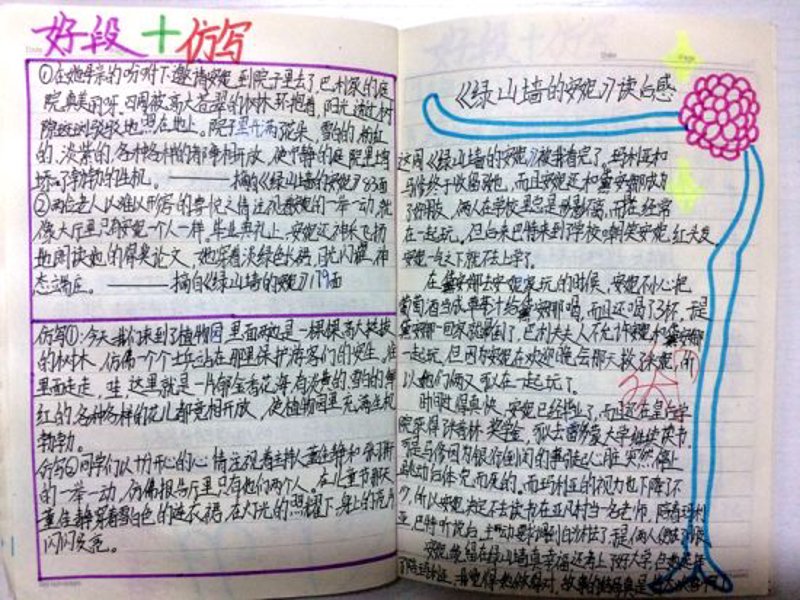 好段＋仿写
①在她母亲的吩咐下邀请安妮到院子里去了巴利家的庭
院真美丽呀。四周被高大苍翠的树林环抱着，阳光透过树
隙斑斑驳驳地照在地上。院子里开满 雪白的、粉红
的、淡紫的、各种各样的都争相开放，使宁静的庭院里增
添了勃勃的生机。——摘自《绿山墙的安妮》83面
②两位老人以难以形容的喜悦之情注视着安妮的一举一动，就
像大厅里只有安妮一个人一样。毕业典礼上，安妮神采飞扬
地阅读她的得奖论文，她穿着淡绿色长裙，目光闪耀，神
态端庄。——摘自《绿山墙的安妮》179面
仿写①：今天我们来到了植物园里面两边是一棵棵高大挺拔
的树木，仿佛一个个士兵站在那里保护游客们的安全，往
里面走走，哇，这里就是一片郁金香花海有淡黄的、雪白的、鲜
红的、各种各样的花儿都竞相开放，使植物园里充满生机
勃勃。
仿写②同学们以十分开心的心情注视着主持人董佳静和
的一举一动，仿佛报告厅里只有他们两个人，在儿童节那天
董佳静穿着雪白色的连衣裙，在灯光的照耀下，身上的亮片
闪闪发亮。
《绿山墙的安妮》读后感
这周《绿山墙的安妮》被我看完了。玛利亚和
马修终于收留了她，而且安妮还和黛安娜成为
了好朋友，俩人在学校里总是形影不离，而且经常
在一起玩。但后来巴特来到了学校嘲笑安妮红头发，
安妮一气之下就不去上学了。
在黛安娜去安妮家玩的时候，安妮不小心把
葡萄酒当成苹果汁给黛安娜喝，而且还喝了3杯。于是
黛安娜一回家就醉倒了，巴利夫人不允许安妮和黛安娜
一起玩，但因为安妮在欢迎晚会那天救了米妮，所
以她们俩又可以在一起玩了。
时间过得真快，安妮已经毕业了，而且还在皇后学
院获得了 奖学金，可以去雷德蒙大学继续读书。
可是马修因为银行倒闭的事引起心脏突然停止
跳动 而死的。而玛利亚的视力也下降了不
少，所以安妮决定不去读书在亚凡村当一名老师，陪着玛利
亚，巴特听说后，主动要求调到 于是俩人
安妮 在绿山墙真幸福还考上了好大学，